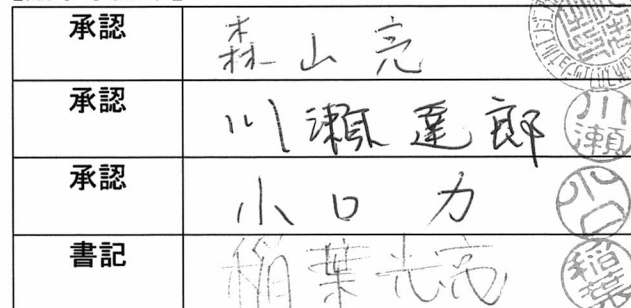 承認 森山亮
承認 川瀬達郎 川瀬
承認 小口力 小口
書記 稲葉光亮 稲葉